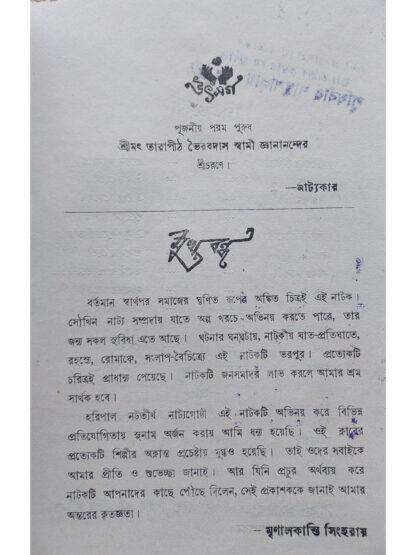 উৎসর্গ
পূজনীয় পরম পুরুষ
শ্রীমৎ তারাপীঠ ভৈরবদাস স্বামী জ্ঞানানন্দের
শ্রীচরণে।
—নাট্যকার
মুখবন্ধ
বর্তমান স্বার্থপর সমাজের ঘৃণিত রূপের অঙ্কিত চিত্রই এই নাটক।
সৌখিন নাট্য সম্প্রদায় যাতে অল্প খরচে অভিনয় করতে পারে, তার
জন্য সকল সুবিধা এতে আছে। ঘটনার ঘনঘটায়, নাটকীয় ঘাত-প্রতিঘাতে,
রহস্যে, রোমাঞ্চে, সংলাপ-বৈচিত্র্যে এই নাটকটি ভরপুর। প্রত্যেকটি
চরিত্রই প্রাধান্য পেয়েছে। নাটকটি জনসমাদর লাভ করলে আমার শ্রম
সার্থক হবে।
হরিপাল নটতীর্থ নাট্যগোষ্ঠী এই নাটকটি অভিনয় করে বিভিন্ন
প্রতিযোগিতায় সুনাম অর্জন করায় আমি ধন্য হয়েছি। ওই ক্লাবের
প্রত্যেকটি শিল্পীর অক্লান্ত প্রচেষ্টায় মুগ্ধও হয়েছি। তাই ওদের সবাইকে
আমার প্রীতি ও শুভেচ্ছা জানাই। আর যিনি প্রচুর অর্থব্যয় করে
নাটকটি আপনাদের কাছে পৌঁছে দিলেন, সেই প্রকাশককে জানাই আমার
অন্তরের কৃতজ্ঞতা।
—মৃণালকান্তি সিংহরায়